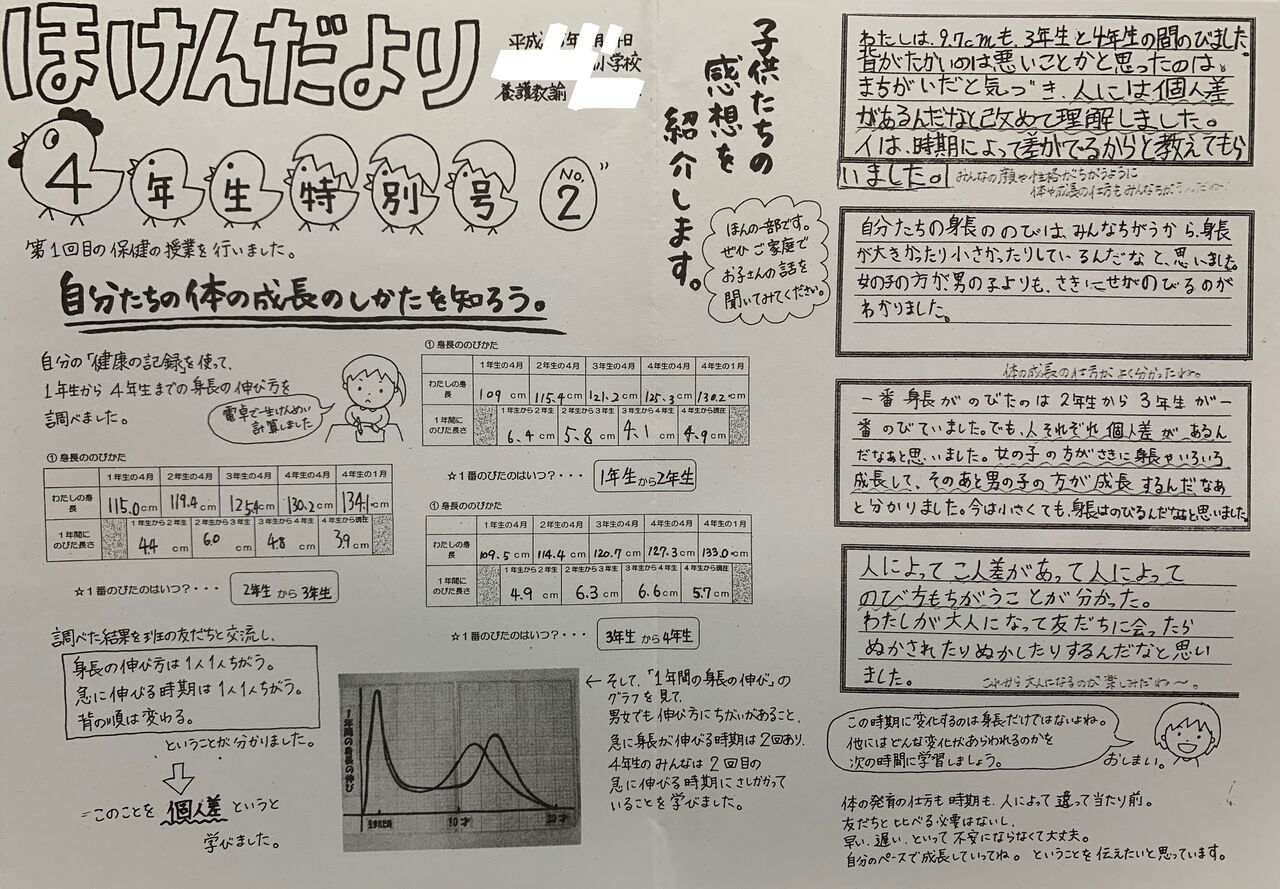 ほけんだより
平成 年 月 日
小学校
養護教諭
4年生特別号 No.2
第1回目の保健の授業を行いました。
自分たちの体の成長のしかたを知ろう。
自分の「健康の記録」を使って、
1年生から4年生までの身長の伸び方を
調べました。
電卓で一生けんめい
計算しました
①身長ののびかた
1年生の4月 2年生の4月 3年生の4月 4年生の4月 4年生の1月
わたしの身長 115.0cm 119.4cm 125.4cm 130.2cm 134.1cm
1年生から2年生 2年生から3年生 3年生から4年生 4年生から現在
1年間にのびた長さ 4.4cm 6.0cm 4.8cm 3.9cm
☆1番のびたのはいつ?・・・ 2年生から3年生
①身長ののびかた
1年生の4月 2年生の4月 3年生の4月 4年生の4月 4年生の1月
わたしの身長 109cm 115.4cm 121.2cm 125.3cm 130.2cm
1年生から2年生 2年生から3年生 3年生から4年生 4年生から現在
1年間にのびた長さ 6.4cm 5.8cm 4.1cm 4.9cm
☆1番のびたのはいつ?・・・ 1年生から2年生
①身長ののびかた
1年生の4月 2年生の4月 3年生の4月 4年生の4月 4年生の1月
わたしの身長 109.5cm 114.4cm 120.7cm 127.3cm 133.0cm
1年生から2年生 2年生から3年生 3年生から4年生 4年生から現在
1年間にのびた長さ 4.9cm 6.3cm 6.6cm 5.7cm
☆1番のびたのはいつ?・・・ 3年生から4年生
調べた結果を班の友だちと交流し、
身長の伸び方は1人1人ちがう。
急に伸びる時期は1人1人ちがう。
背の順は変わる。
ということが分かりました。
このことを個人差というと
学びました。
1年間の身長の伸び
10才
20才
←そして、「1年間の身長の伸び」の
グラフを見て、
男女でも伸び方にちがいがあること、
急に身長が伸びる時期は2回あり、
4年生のみんなは2回目の
急に伸びる時期にさしかかって
いることを学びました。
子供たちの
感想を
紹介します。
ほんの一部です。
ぜひご家庭で
お子さんの話を
聞いてみてください。
わたしは、9.7cmも、3年生と4年生の間のびました。
背がたかいのは悪いことかと思ったのは、
まちがいだと気づき、人には個人差
があるんだなと改めて理解しました。
イは、時期によって差がでるからと教えてもら
いました。
みんなの顔や性格がちがうように
体や成長の仕方もみんなちがうんだね
自分たちの身長ののびは、みんなちがうから、身長
が大きかったり小さかったりしているんだなと、思いました。
女の子の方が男の子よりも、さきにせがのびるのが
わかりました。
体の成長の仕方がよく分かったね。
一番身長がのびたのは2年生から3年生が一
番のびていました。でも、人それぞれ個人差があるん
だなぁと思いました。女の子の方がさきに身長やいろいろ
成長して、そのあと男の子の方が成長するんだなぁ
と分かりました。今は小さくても、身長はのびるんだなぁと思いました。
人によってこ人差があって人によって
のび方もちがうことが分かった。
わたしが大人になって友だちに会ったら
ぬかされたりぬかしたりするんだなと思い
ました。
これから大人になるのが楽しみだね〜。
この時期に変化するのは身長だけではないよね。
他にはどんな変化があらわれるのかを
次の時間に学習しましょう。
おしまい。
体の発育の仕方も時期も、人によって違って当たり前。
友だちと比べる必要はないし、
早い、遅い、といって不安にならなくて大丈夫。
自分のペースで成長していってね。ということを伝えたいと思っています。